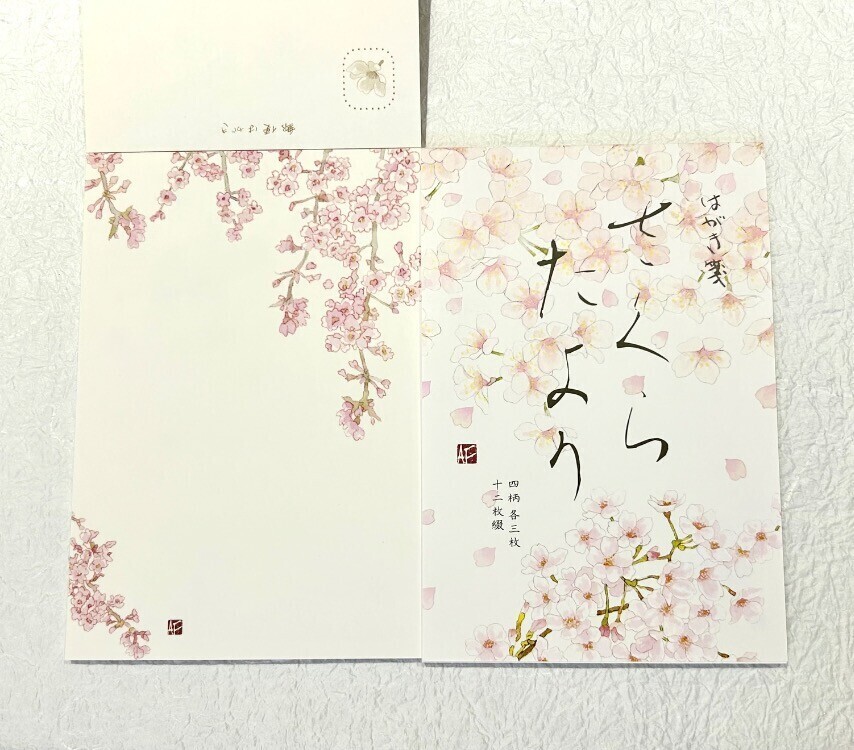 はがき箋
さくら
たより
四柄 各三枚
十二枚綴
AF
郵便はがき
AF